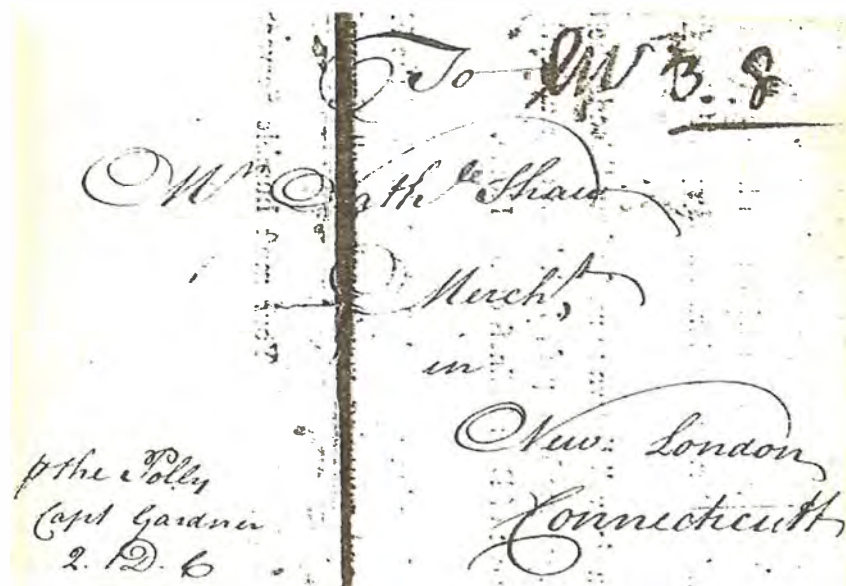 To
3. 8
Mr Nathle Shaw
Mercht,
in
New London
Connecticutt
p the Polly
Capt Gardner
2. D. C